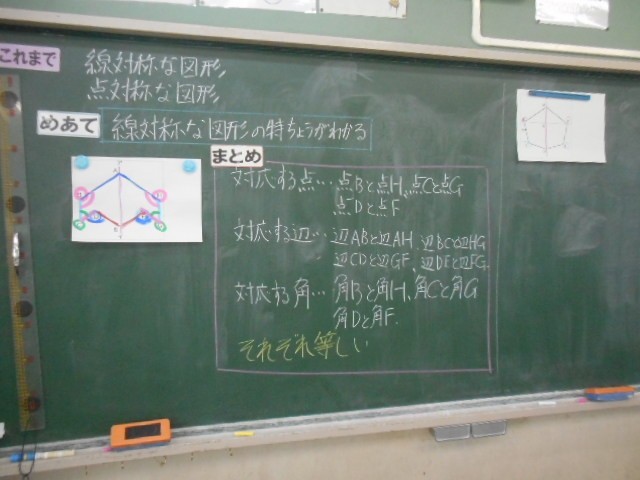 これまで
線対称な図形
点対称な図形
めあて
線対称な図形の特ちょうがわかる
まとめ
対応する点…点Bと点H、点Cと点G
点Dと点F
対応する辺…辺ABと辺AH、辺BCと辺HG
辺CDと辺GF、辺DEと辺FG
対応する角…角Bと角H、角Cと角G
角Dと角F.
それぞれ等しい